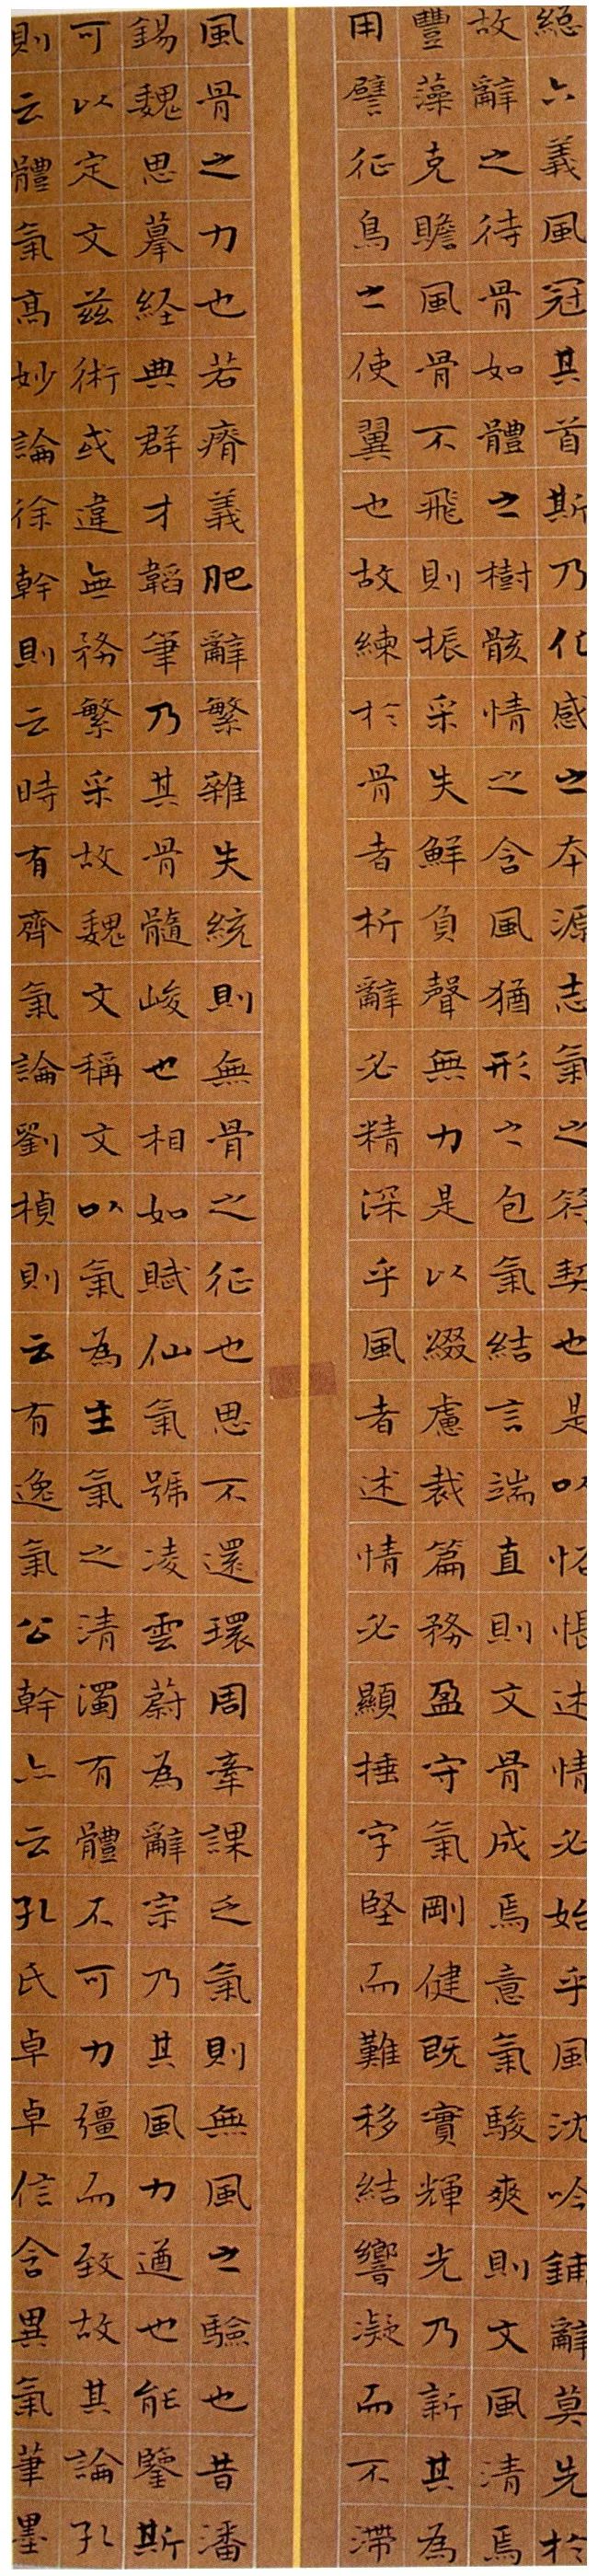 緫六義風冠其首斯乃化感之本源志氣之符契也是以怊悵述情必始乎風沈吟鋪辭莫先於
故辭之待骨如體之樹骸情之含風猶形之包氣結言端直則文骨成焉意氣駿爽則文風清焉
豐藻克贍風骨不飛則振采失鮮負聲無力是以綴慮裁篇務盈守氣剛健既實輝光乃新其為
用譬征鳥之使翼也故練於骨者析辭必精深乎風者述情必顯捶字堅而難移結響凝而不滯
風骨之力也若瘠義肥辭繁雜失統則無骨之征也思不還環周牽課乏氣則無風之驗也昔潘
錫魏思摹経典群才韜筆乃其骨髓峻也相如賦仙氣號凌雲蔚為辭宗乃其風力遒也能鑒斯
可以定文茲術或違無務繁采故魏文稱文以氣為主氣之清濁有體不可力彊而致故其論孔
則云體氣高妙論徐幹則云時有齊氣論劉楨則云有逸氣公幹亦云孔氏卓卓信含異氣筆墨